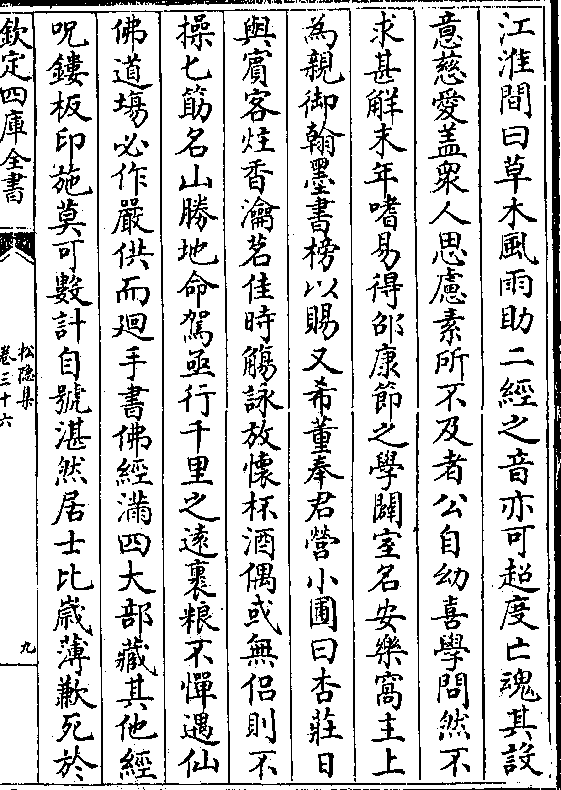 江淮間曰草木風雨助二經之音亦可超度亡魂其設
意慈愛盖衆人思慮素所不及者公自幼喜學問然不
求甚解末年嗜易得邵康節之學闢室名安樂窩主上
為親御翰墨書榜以賜又希董奉君營小圃曰杏莊日
與賔客炷香瀹茗佳時觴詠放懷杯酒偶或無侣則不
操匕筯名山勝地命駕亟行千里之遠裹粮不憚遇仙
佛道塲必作嚴供而廻手書佛經滿四大部藏其他經
呪鏤板印施莫可數計自號湛然居士比歳薄歉死於
欽定四庫全書
松隐集
卷三十六
九